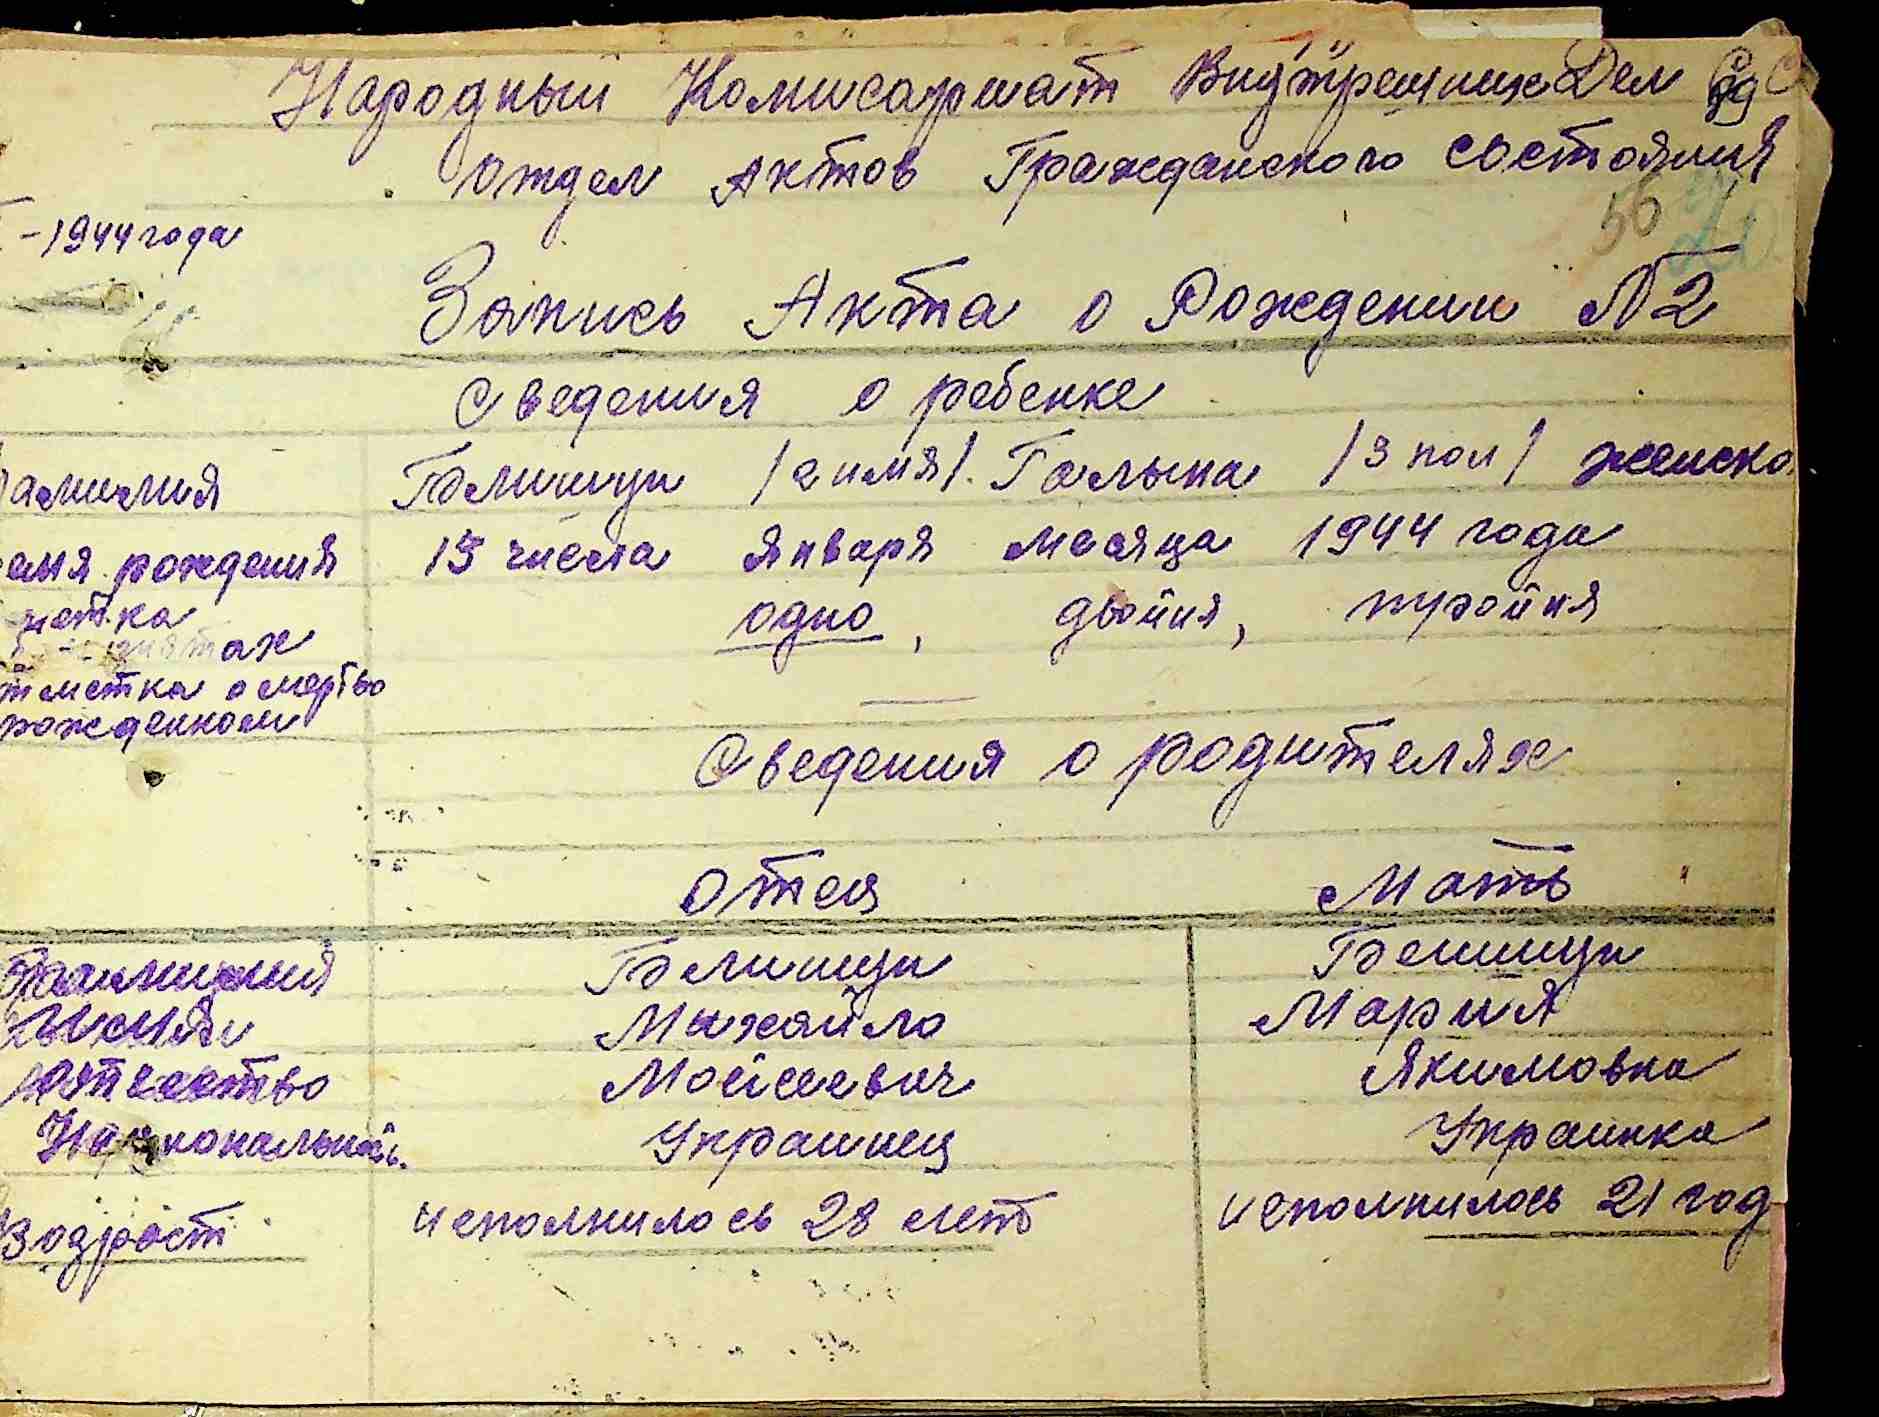 Народный Комисариат Внутренних Дел
отдел Актов Гражданского состояния
56 20
-1944 года
Запись Акта о Рождении №2
Сведения о ребенке
амилия /2 имя/. Галына /3 пол/ женско
емя рождения 13 числа января месяца 1944 года
метка одно, двойня, тройня
тметка о мертво
рожденном
Сведения о родителях
Отец Мать
Фамилия
Имя Михайло Мария
Отчество Мойсеевич Якимовна
Национальность Украинец Украинка
Возрост исполнилось 28 лет исполнилось 21 год